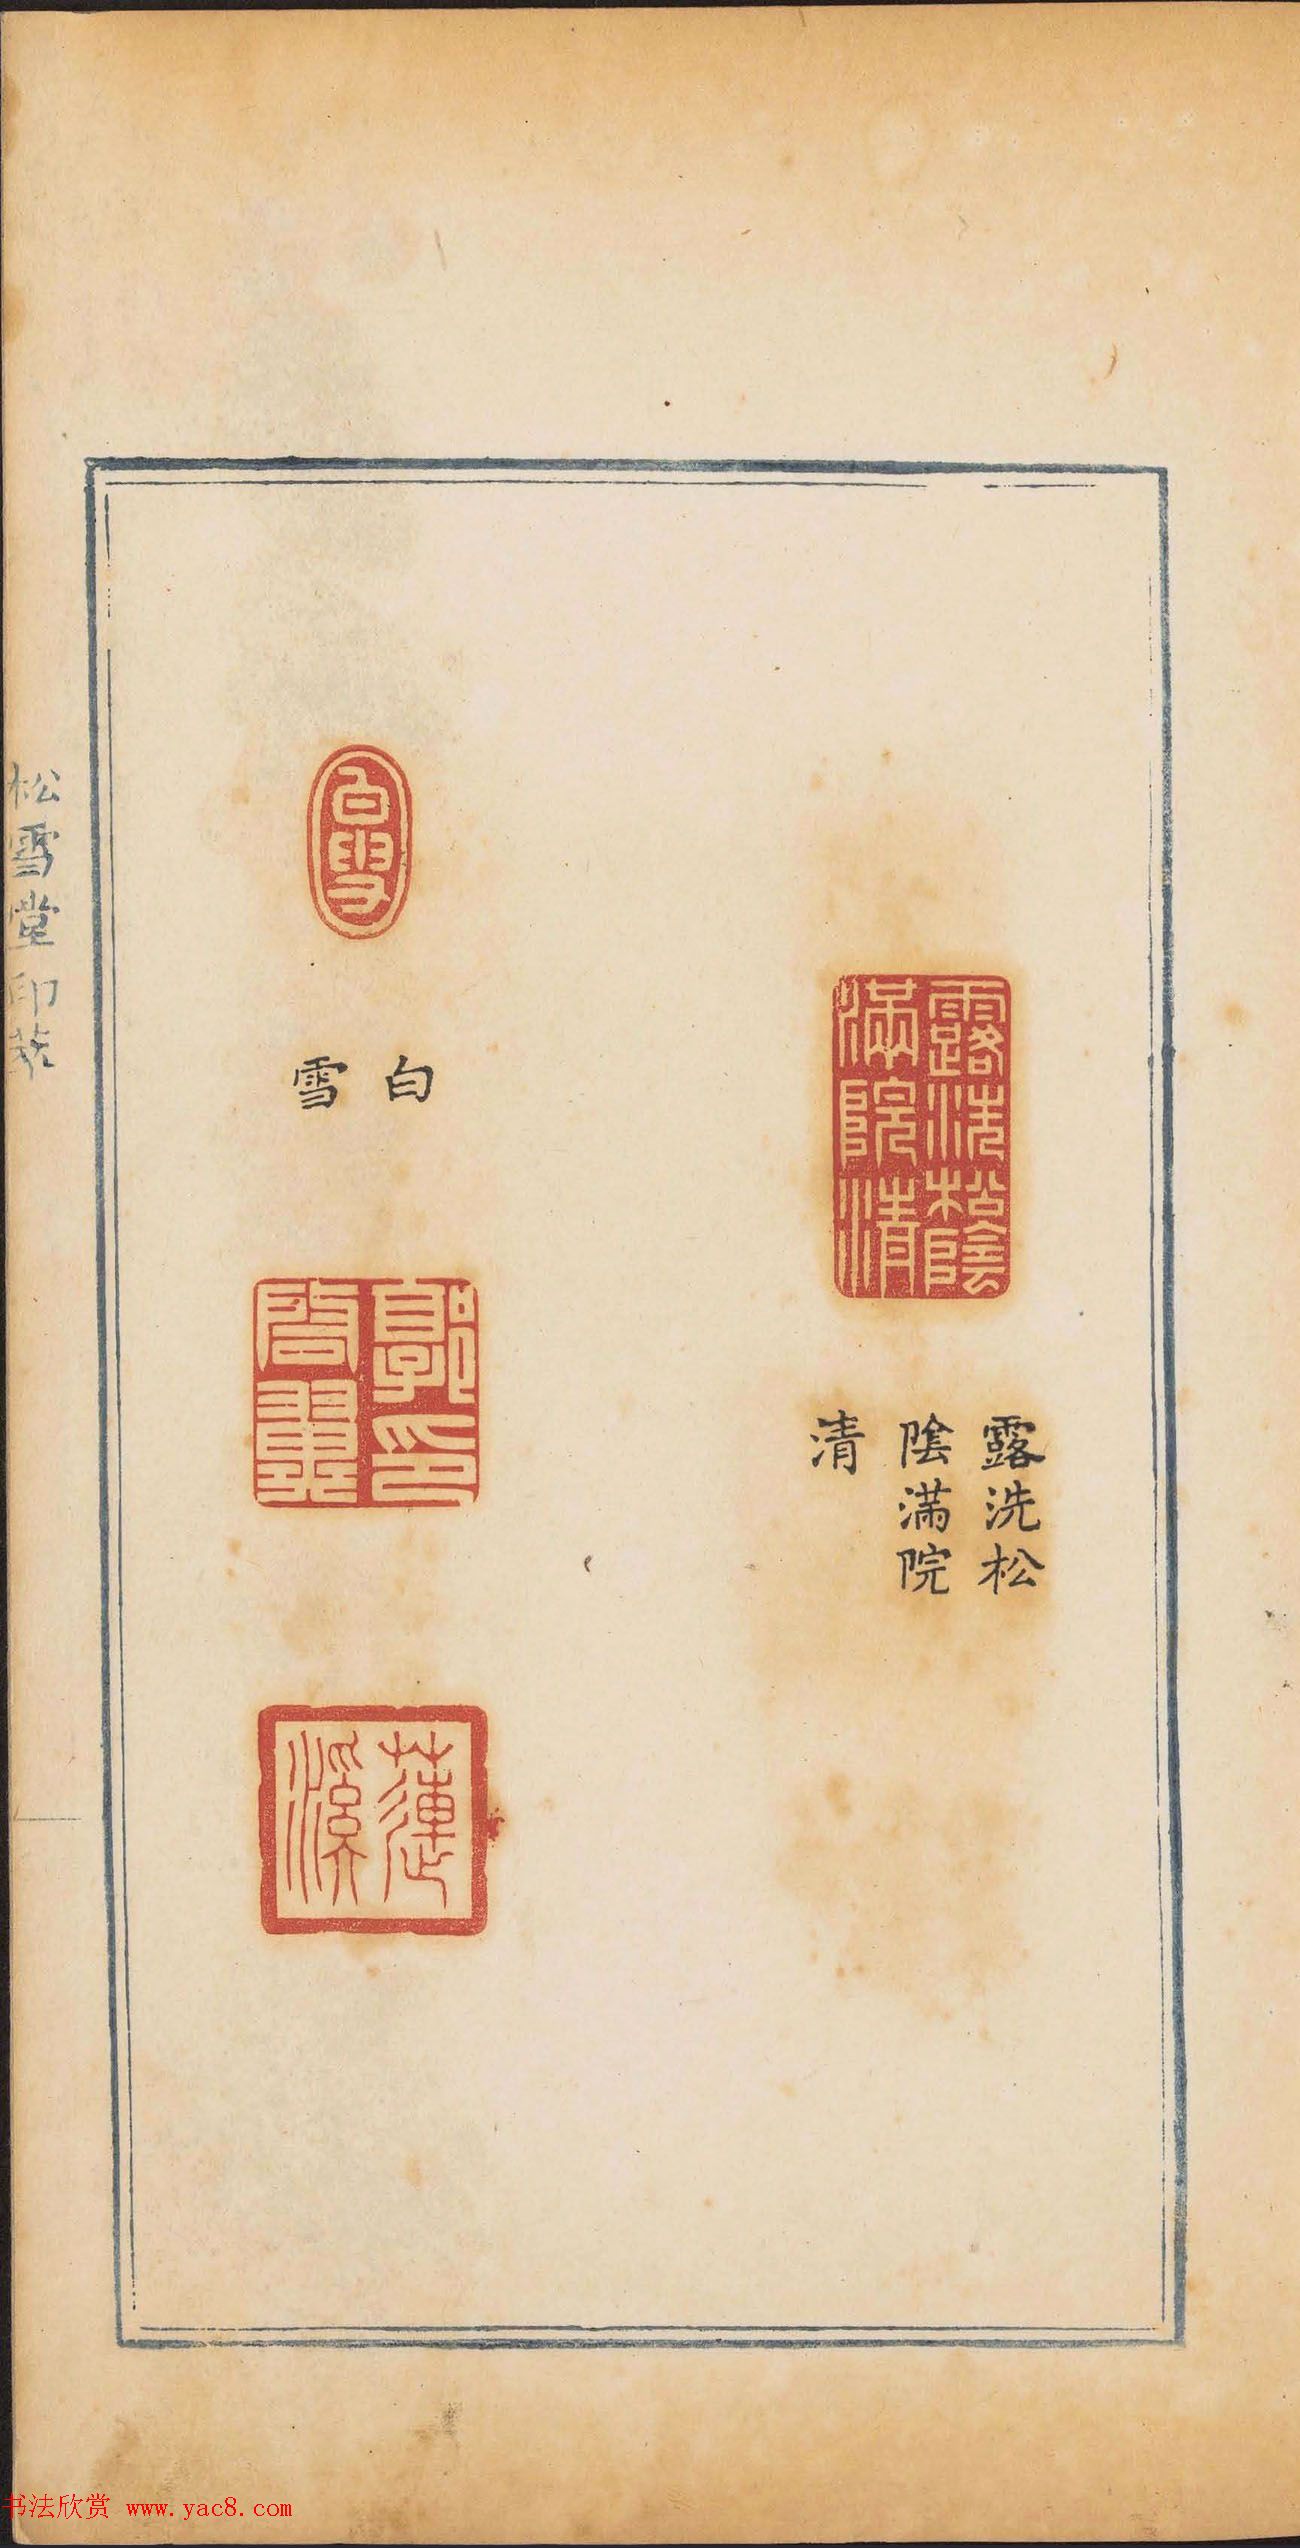 露洗松陰
滿院清
露洗松
陰滿院
清
白
雪
郭印
啓翼
蓮
溪
松雪堂印萃
书法欣赏 www.yac8.com